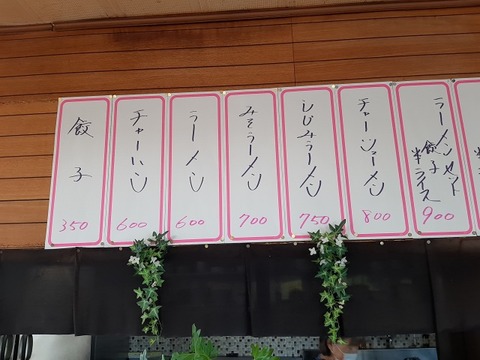 餃子
350
チャーハン
600
ラーメン
600
みそラーメン
700
しじみラーメン
750
チャーシューメン
800
ラーメンセット
餃子
半ライス
900